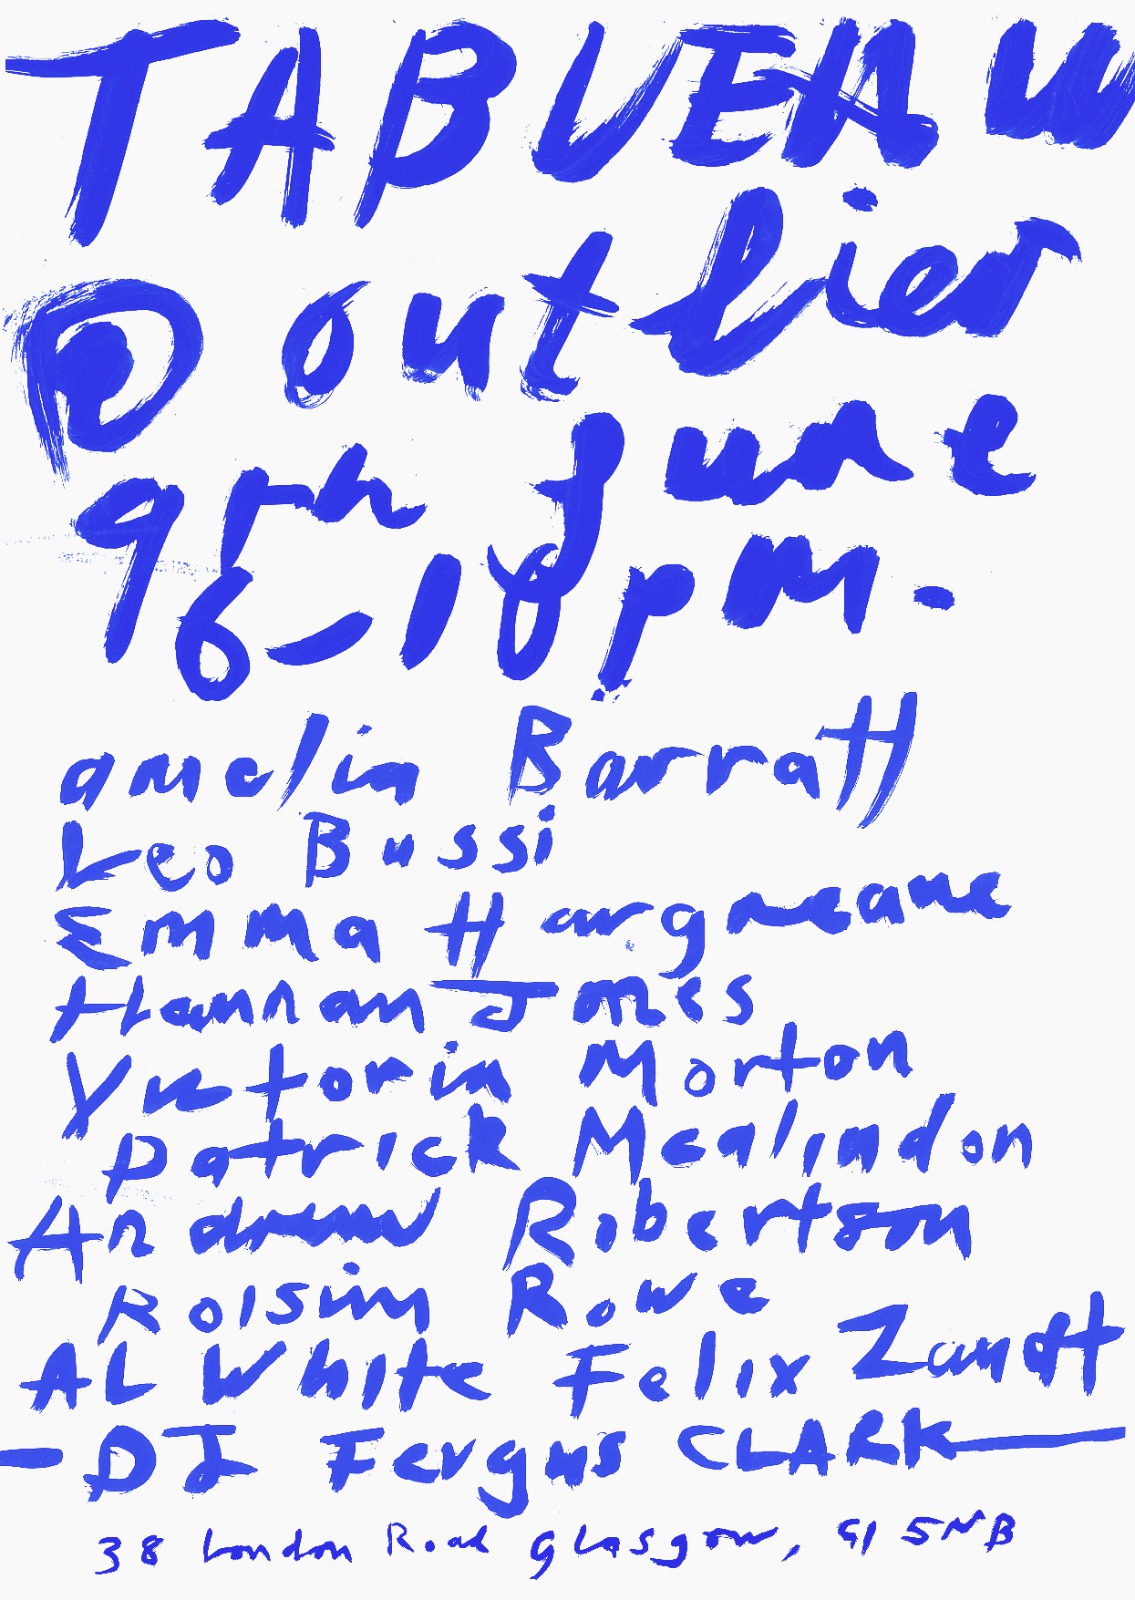 TABLEAU
@ outlier
9th June
6-10pm.
amelia Barratt
Leo Bussi
Emma Hargreave
Hannah Jones
Victoria Morton
Patrick Mcalindon
Andrew Robertson
Roisin Rowe
AL White Felix Zandt
- DJ Fergus CLARK -
38 London Road Glasgow, G1 5NB